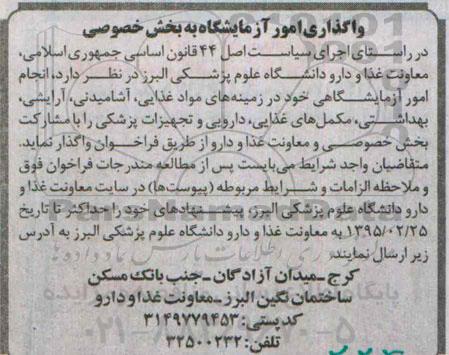 واگذاری امور آزمایشگاه به بخش خصوصی
در راستای اجرای سیاست اصل ۴۴ قانون اساسی جمهوری اسلامی،
معاونت غذا و دارو دانشگاه علوم پزشکی البرز در نظر دارد، انجام
امور آزمایشگاهی خود در زمینه‌های مواد غذایی، آشامیدنی، آرایشی،
بهداشتی، مکمل‌های غذایی، دارویی و تجهیزات پزشکی را با مشارکت
بخش خصوصی و معاونت غذا و دارو از طریق فراخوان واگذار نماید.
متقاضیان واجد شرایط می‌بایست پس از مطالعه مندرجات فراخوان فوق
و ملاحظه الزامات و شرایط مربوطه (پیوست‌ها) در سایت معاونت غذا و
دارو دانشگاه علوم پزشکی البرز، پیشنهادهای خود را حداکثر تا تاریخ
۱۳۹۵/۰۲/۲۵ به معاونت غذا و دارو دانشگاه علوم پزشکی البرز به آدرس
زیر ارسال نمایند.
کرج - میدان آزادگان - جنب بانک مسکن
ساختمان نگین البرز - معاونت غذا و دارو
کد پستی: ۳۱۴۹۷۷۹۴۵۳
تلفن: ۳۲۵۰۰۲۳۲